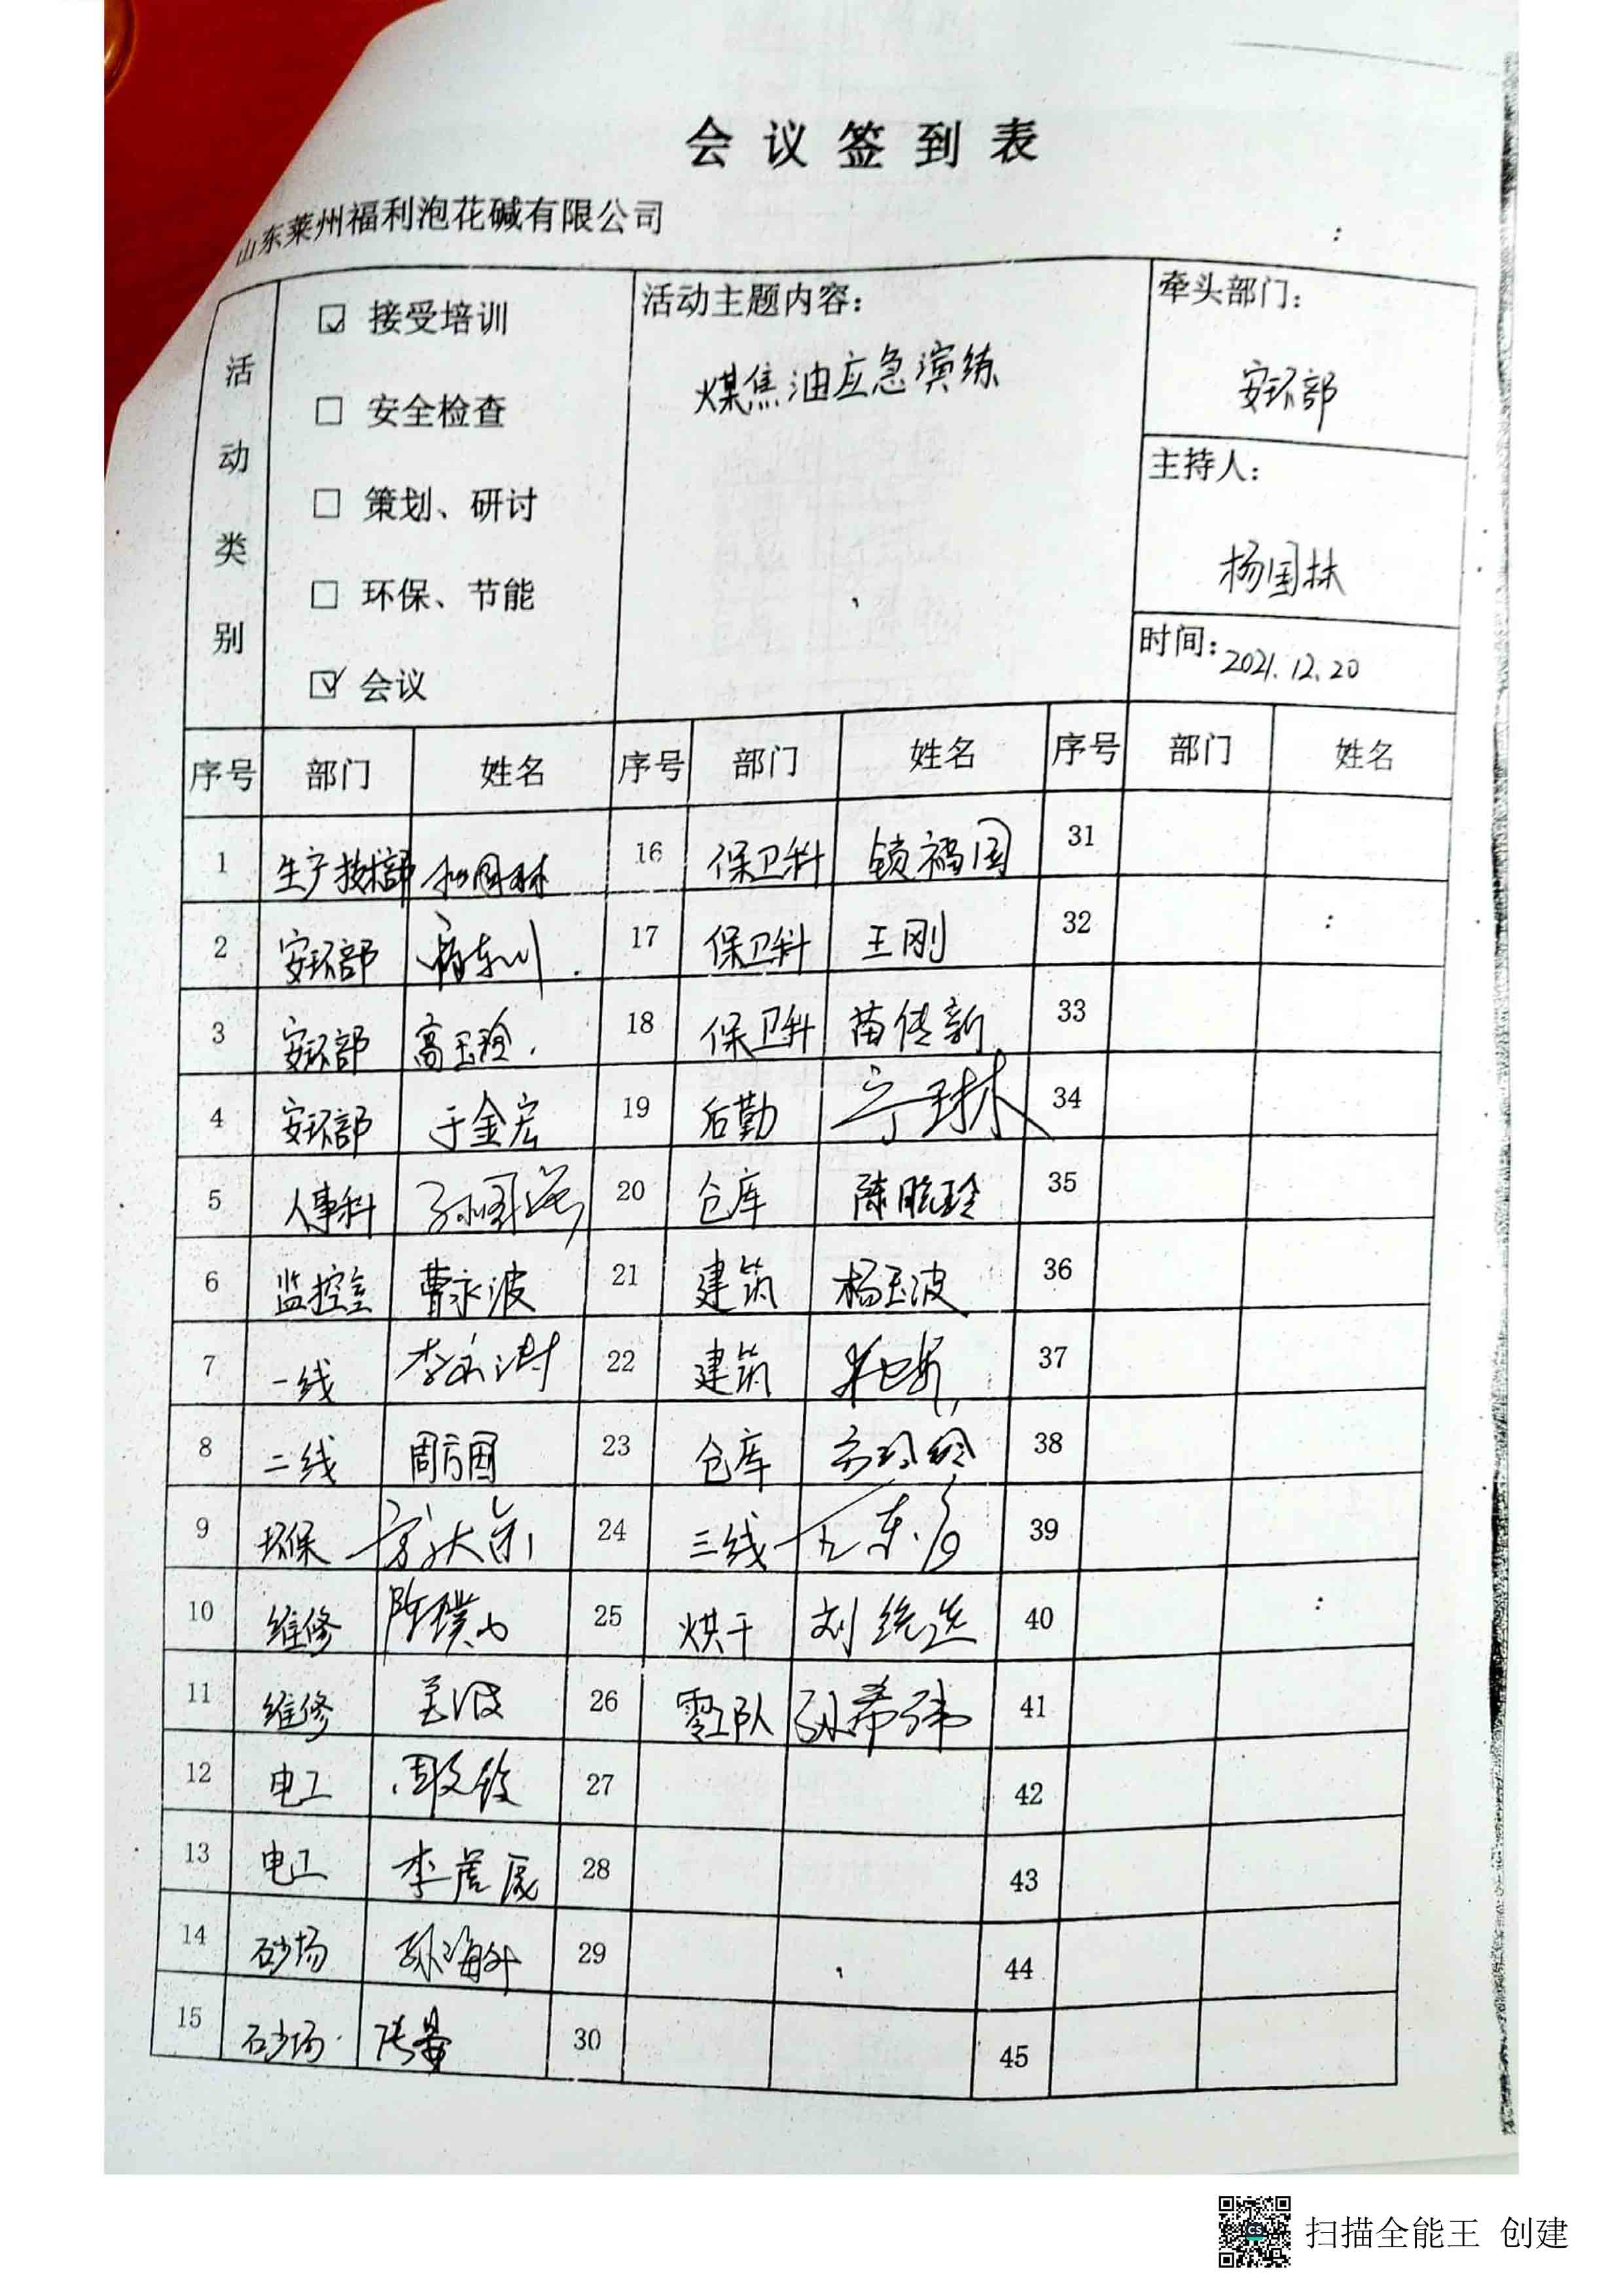 会议签到表
山东莱州福利泡花碱有限公司
活动类别
☑ 接受培训
☐ 安全检查
☐ 策划、研讨
☐ 环保、节能
☑ 会议
活动主题内容：
煤焦油应急演练
牵头部门：
安环部
主持人：
杨国林
时间：2021.12.20
序号 部门 姓名 序号 部门 姓名 序号 部门 姓名
1 生产技术部 杨国林 16 保卫科 锁福国 31
2 安环部 17 保卫科 王刚 32
3 安环部 高玉玲 18 保卫科 苗传新 33
4 安环部 于金宏 19 后勤 34
5 人事科 20 仓库 陈晓玲 35
6 监控室 曹永波 21 建筑 杨玉波 36
7 一线 李永涛 22 建筑 37
8 二线 周方国 23 仓库 38
9 环保 24 三线 39
10 维修 25 烘干 刘统选 40
11 维修 姜波 26 零工队 孙希伟 41
12 电工 27 42
13 电工 28 43
14 砂场 29 44
15 砂场 30 45
扫描全能王 创建